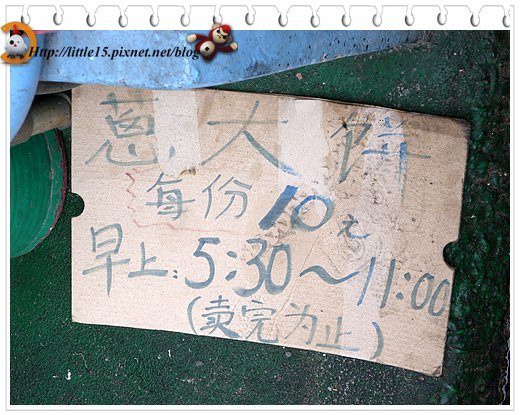 Http://little15.pixnet.net/blog
蔥大餅
每份10元
早上:5:30~11:00
(卖完为止)